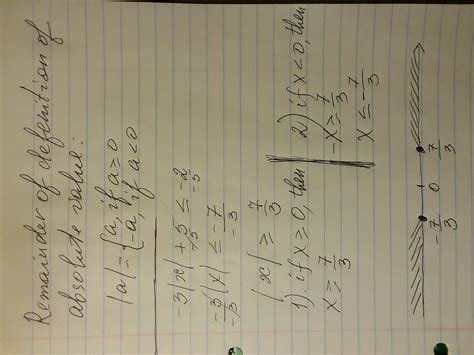 Remainder of defenition of
absolute value:
|a| = { a, if a ≥ 0
-a, if a < 0
-3|x| + 5 ≤ -2
-5 -5
-3|x| ≤ -7
-3 -3
|x| ≥ 7/3
1) if x ≥ 0, then
x ≥ 7/3
2) if x < 0, then
-x ≥ 7/3
x ≤ -7/3
-7/3 0 7/3